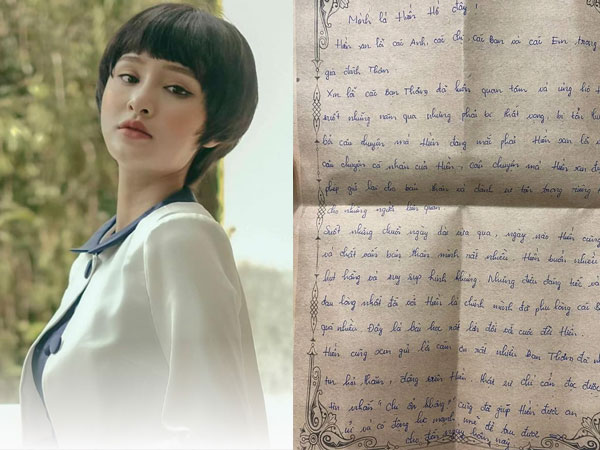 Mình là Hiền Hồ đây !
Hiền xin lỗi các Anh, các chị các Bạn và các Em trong
gia đình Thơm
Xin lỗi các Bạn Thơm đã luôn quan tâm và ủng hộ H
suốt những năm qua nhưng phải bị thất vọng, bị tổn
bởi câu chuyện mà Hiền đang mắc phải Hiền xin lỗi
câu chuyện cá nhân của Hiền, câu chuyện mà Hiền xin
phép giữ lại cho bản thân và dành sự tôn trọng riêng
cho những người liên quan.
Suốt những chuỗi ngày dài vừa qua, ngày nào Hiền cũng
và chất vấn bản thân mình rất nhiều Hiền buồn nhiều
hụt hẫng và suy sụp khủng khiếp Nhưng điều đáng tiếc và
đau lòng nhất đối với Hiền là chính mình đã phụ lòng các
quá nhiều. Đây là bài học rất lớn đối với cuộc đời Hiền.
Hiền cũng xin gửi lời cảm ơn rất nhiều Bạn Thơm đã
tin hỏi thăm, động viên Hiền. thật sự chỉ cần đọc được
tin nhắn " Chị ổn không? " cũng đã giúp Hiền được an
ủi và có động lực mạnh mẽ để trụ được
cho đến ngày hôm nay